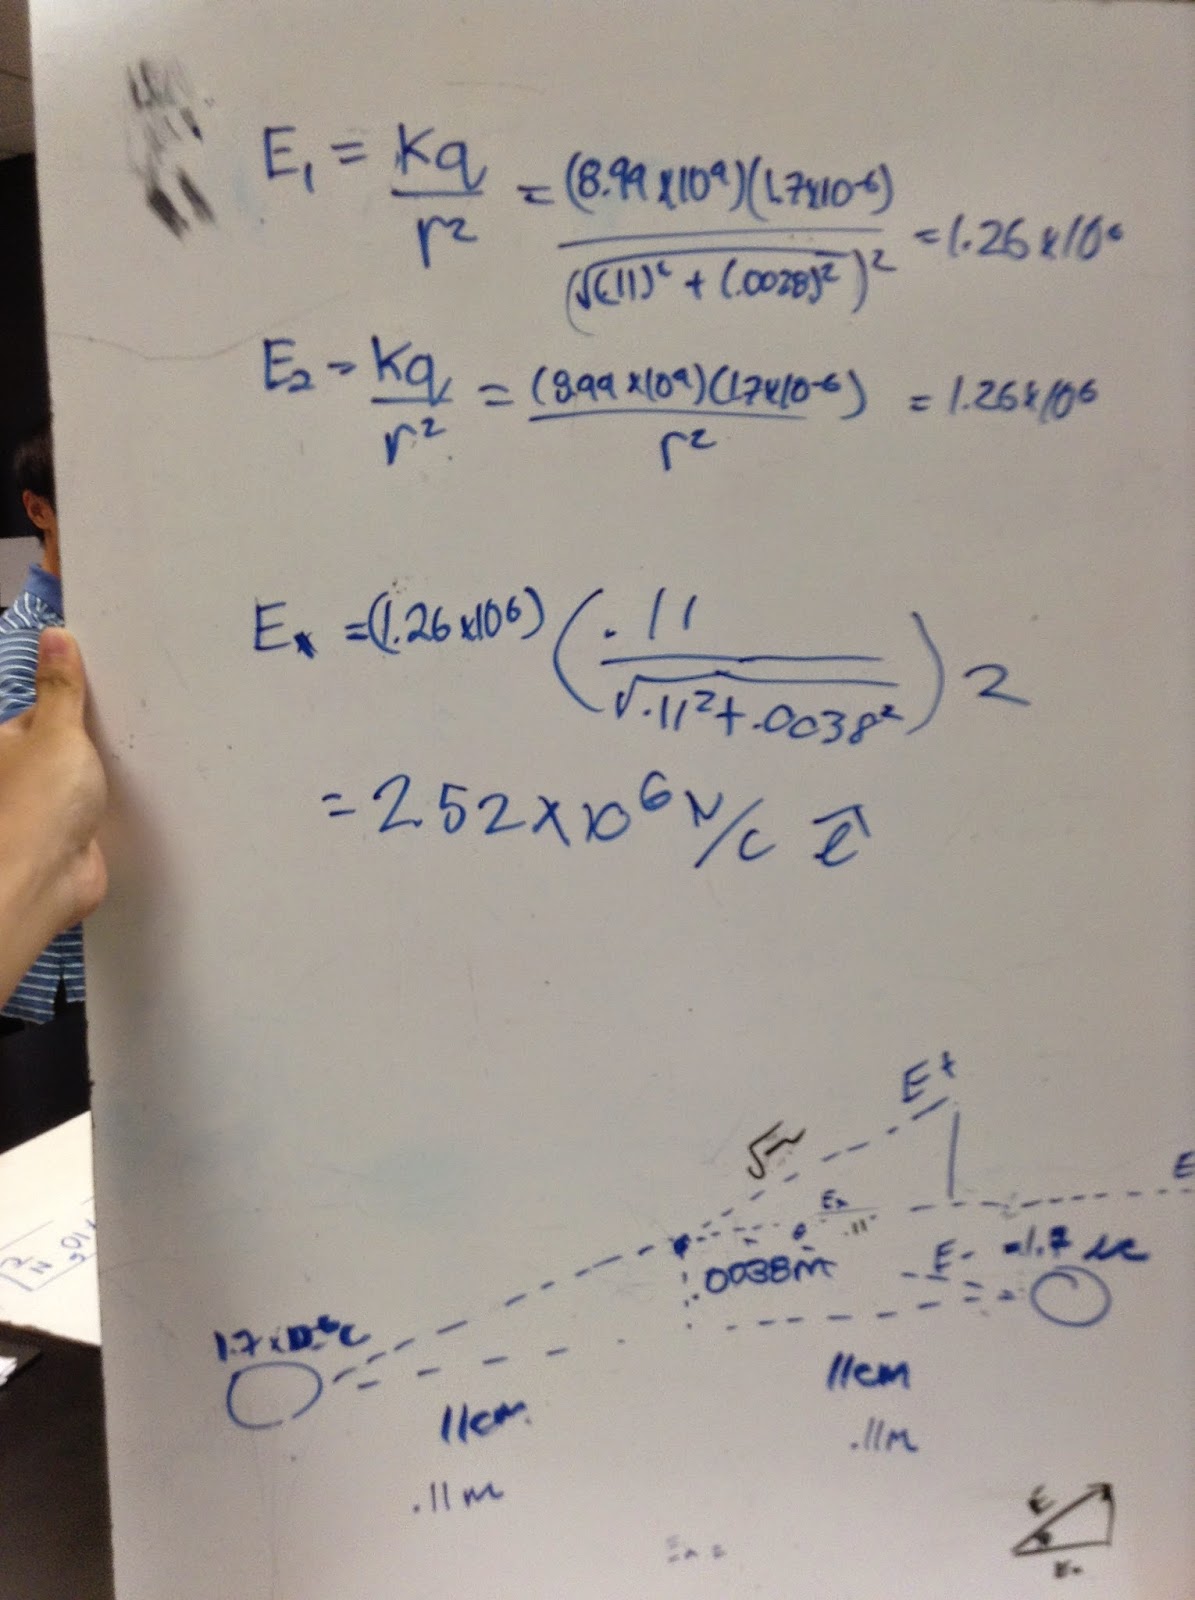 E₁ = Kq/r² = (8.99 x10⁹)(1.7x10⁻⁶)/(√(.11)² + (.0028)²)² = 1.26 x 10⁶
E₂ = Kq/r² = (8.99 x10⁹)(1.7x10⁻⁶)/r² = 1.26x10⁶
Eₓ = (1.26 x10⁶) (.11/√.11²+.0038²) 2
= 2.52 x 10⁶ N/C
E+
E
Eₓ
.11
.0038m
E-
1.7 x 10⁻⁶C
11cm
11cm
.11m
.11m
E